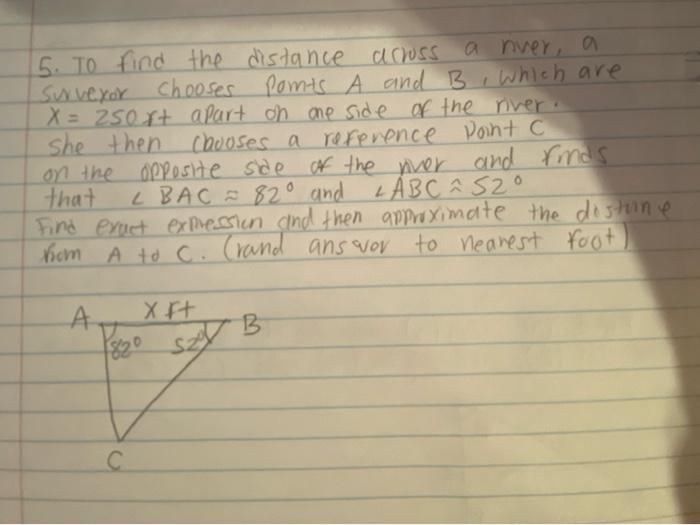 5. To find the distance across a river, a
surveyor chooses points A and B, which are
x = 250 ft apart on one side of the river.
she then chooses a reference point C
on the opposite side of the river and finds
that ∠ BAC ≈ 82° and ∠ABC ≈ 52°
Find exact expression and then approximate the distance
from A to C. (rand answor to nearest foot)
A x ft B
82° 52°
C